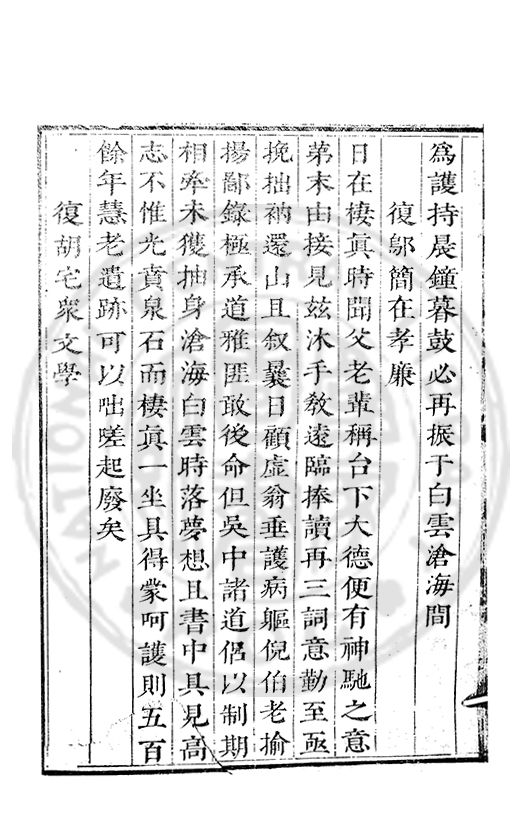 為護持晨鐘暮鼓必再振于白雲滄海間
復鄔簡在孝廉
日在棲眞時聞父老輩稱台下大德便有神馳之意
弟末由接見玆沐手敎遠臨捧讀再三詞意勤至亟
挽拙衲還山且叙曩日顧虛翁垂護病軀倪伯老揄
揚鄙錄極承道雅匪敢後命但吳中諸道侶以制期
相牽未獲抽身滄海白雲時落夢想且書中具見高
志不惟光賁泉石而棲眞一坐具得蒙呵護則五百
餘年慧老遺跡可以咄嗟起廢矣
復胡宅衆文學